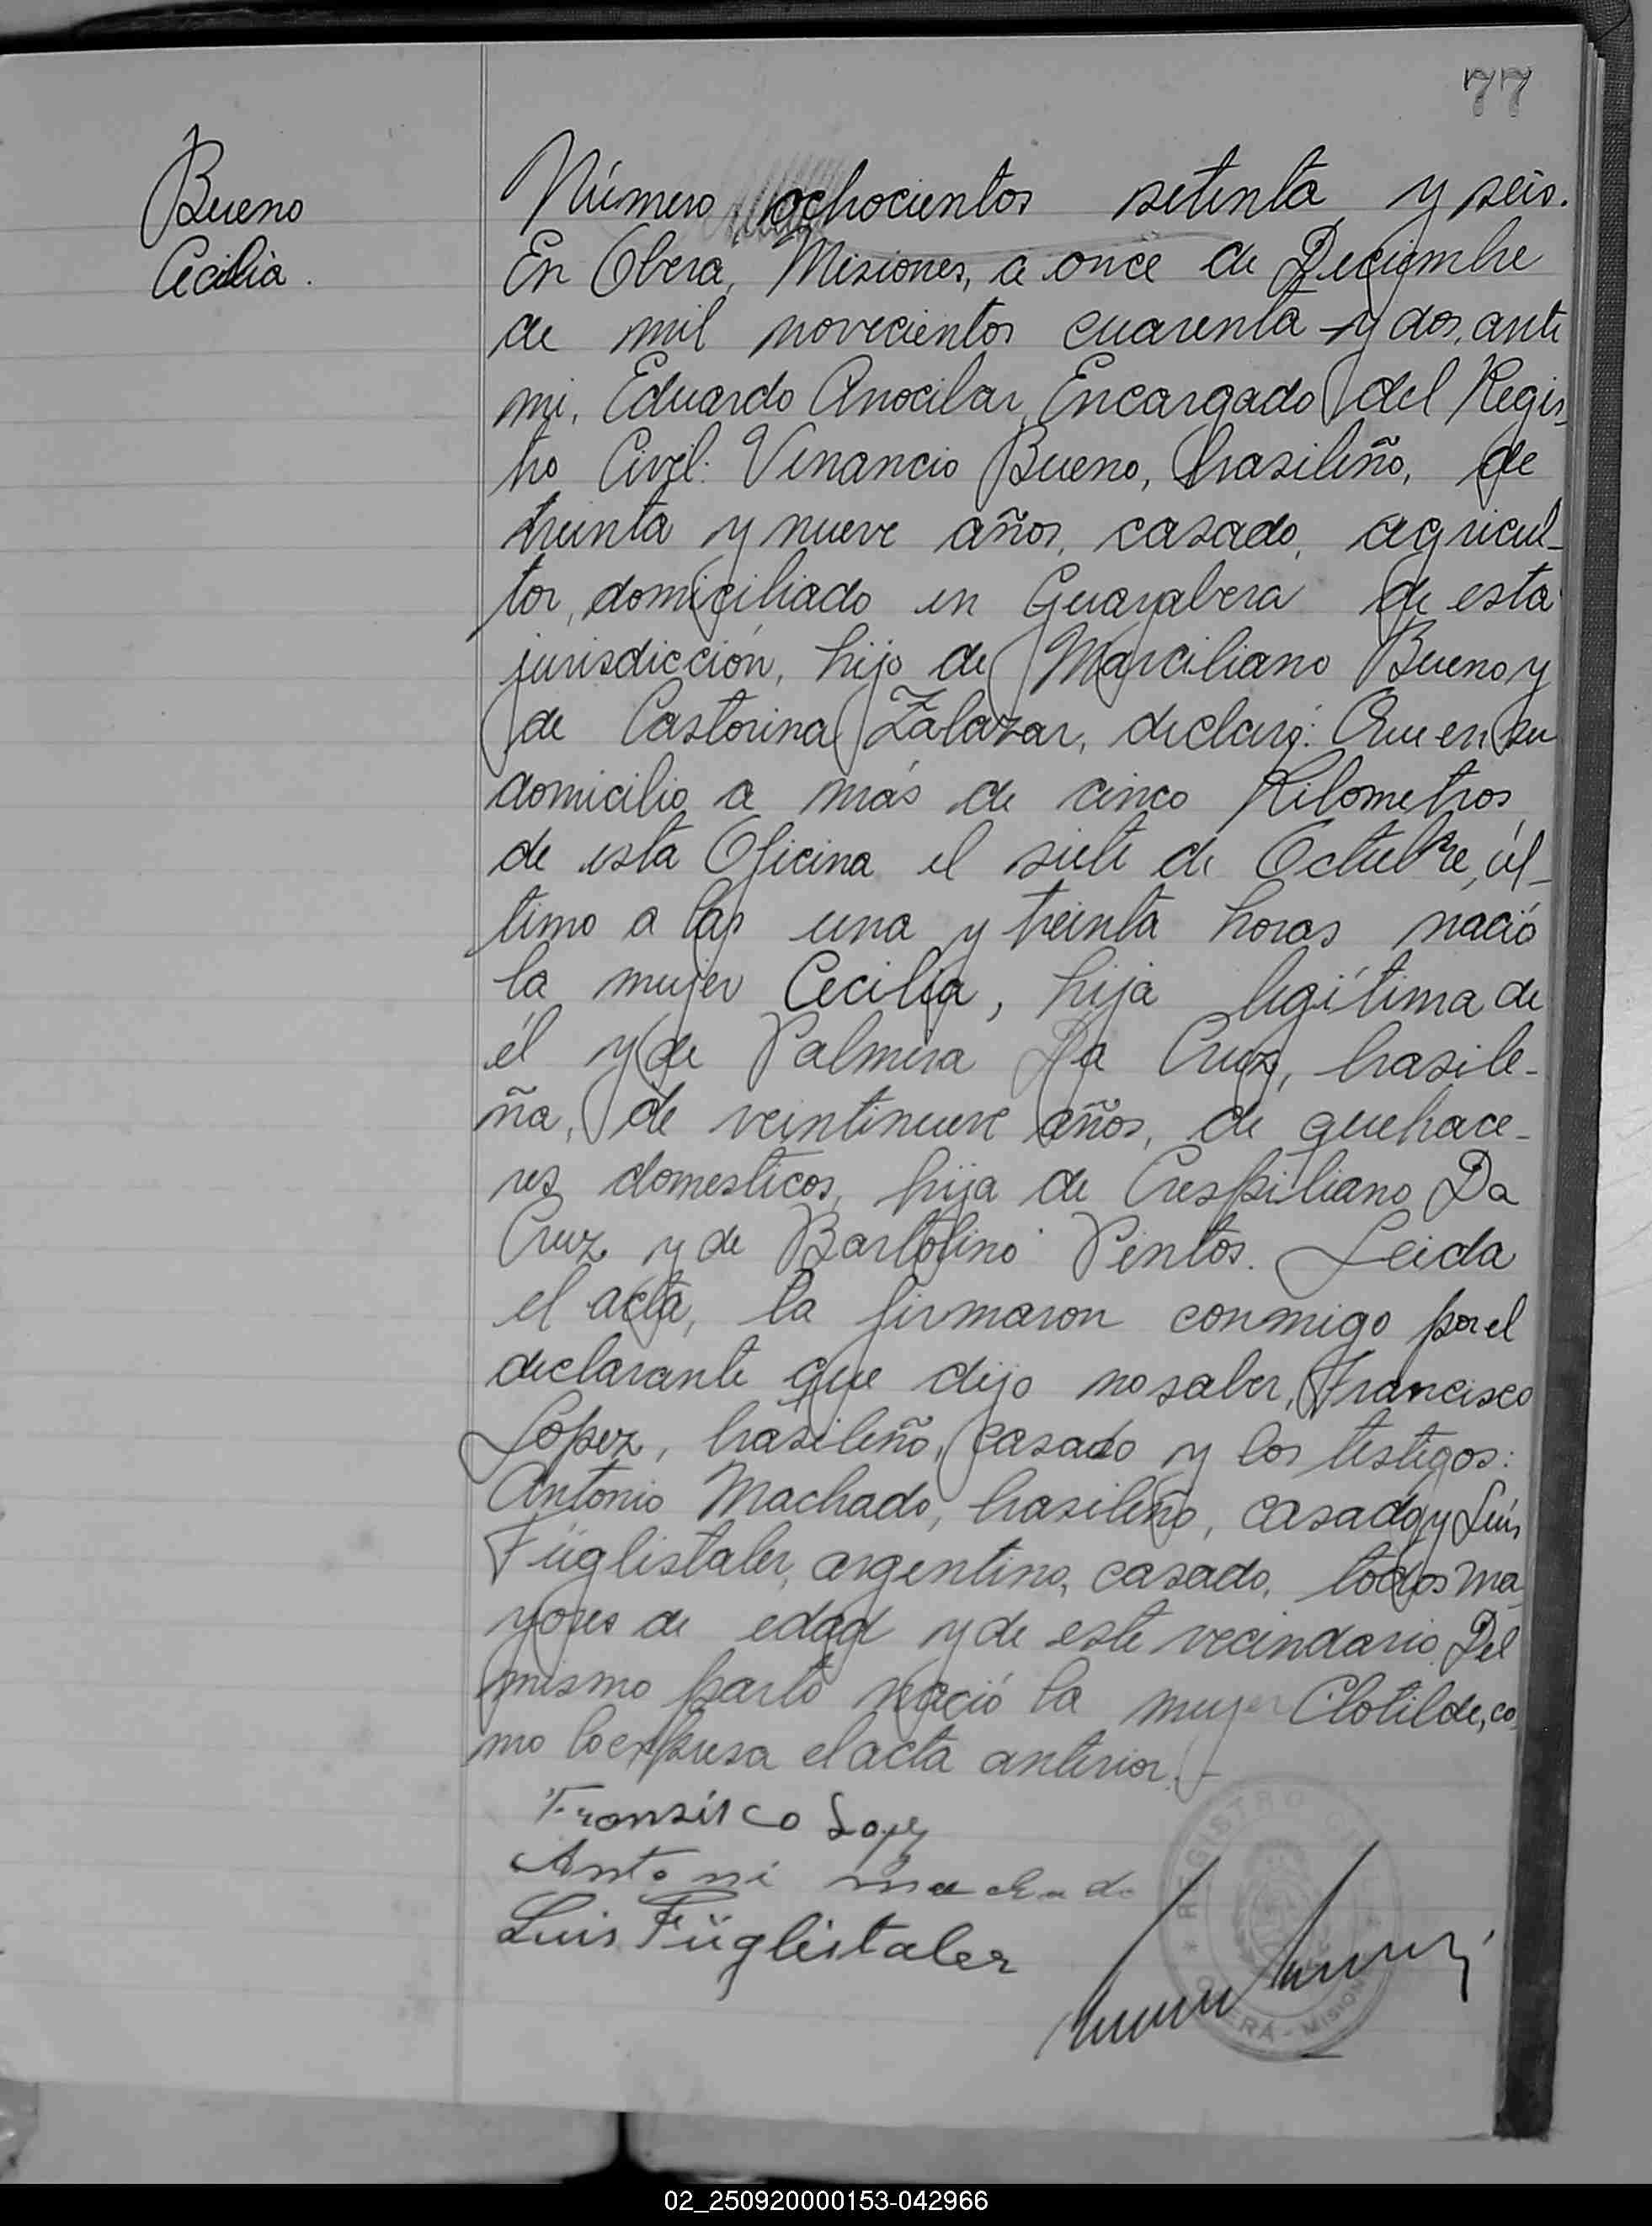 77
Bueno
Cecilia.
Número ochocientos setenta y seis.
En Obera, Misiones, a once de Deciembre
de mil novecientos cuarenta y dos, ante
mi, Eduardo Anocibar, Encargado del Regis-
tro Civil: Venancio Bueno, brasileño, de
treinta y nueve años, casado, agricul-
tor, domiciliado en Guayabera de esta
jurisdicción, hijo de Marciliano Bueno y
de Castorina Zalazar, declaró: Que en su
domicilio a más de cinco Kilometros
de esta Oficina el siete de Octubre, úl-
timo a las una y treinta horas nació
la mujer Cecilia, hija legítima de
él y de Palmira Da Cruz, brasile-
ña, de veintinueve años, de quehace-
res domesticos, hija de Crespiliano Da
Cruz y de Bartolino Pintos. Leida
el acta, la firmaron conmigo por el
declarante que dijo no saber, Francisco
Lopez, brasileño, casado y los testigos:
Antonio Machado, brasileño, casado y Luis
Füglistaler, argentino, casado, todos ma-
yores de edad y de este vecindario. Del
mismo parto nació la mujer Clotilde, co-
mo lo expresa el acta anterior.-
Fransisco Lopez
Antoni machado
Luis Füglistaler
REGISTRO
OBERÁ - MISIONES
02_250920000153-042966